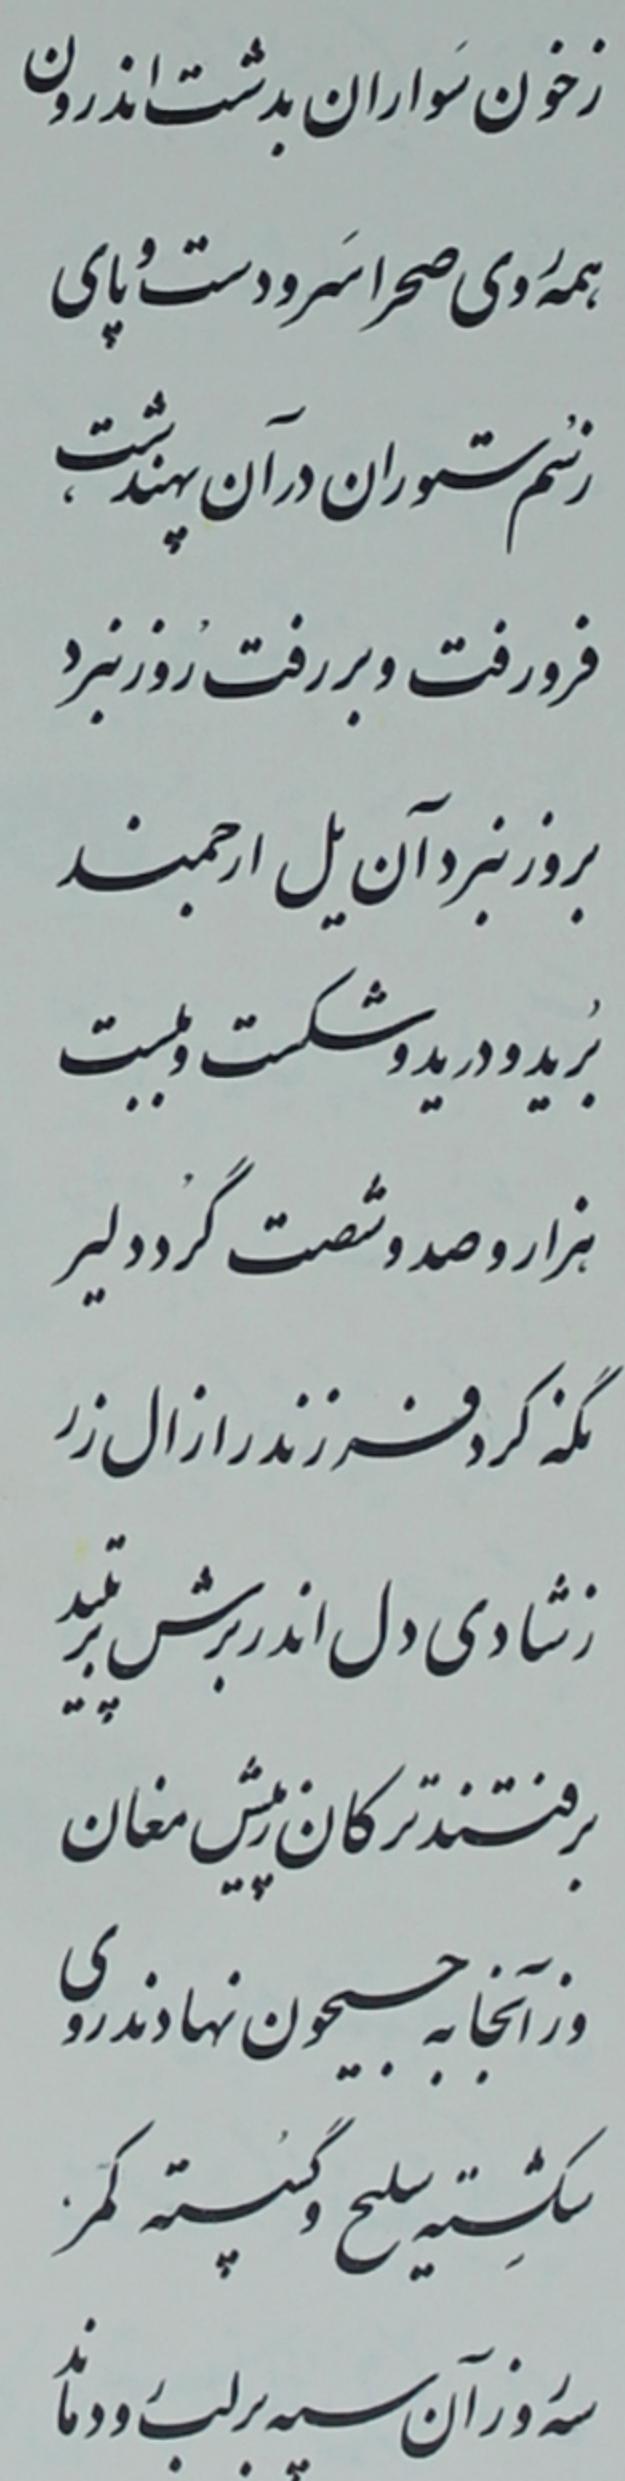 زخون سَواران بدشت اندرون
همه رَوی صحرا سَر و دست و پای
ز سُم ستوران در آن پهندشت
فرو رفت و بر رفت رُوز نبرد
بروز نبرد آن یل ارجمند
بُرید و درید و شکست و ببست
هزار و صد و شصت گُرد دلیر
نگه کرد فرزند را زال زر
ز شادی دل اندر برش برتپید
برفتند ترکان ز پیش مغان
وز آنجا به جیحون نهادند روی
شکِسته سلیح و گسُسته کمر
سه رَوز آن سپه بر لب رَود ماند